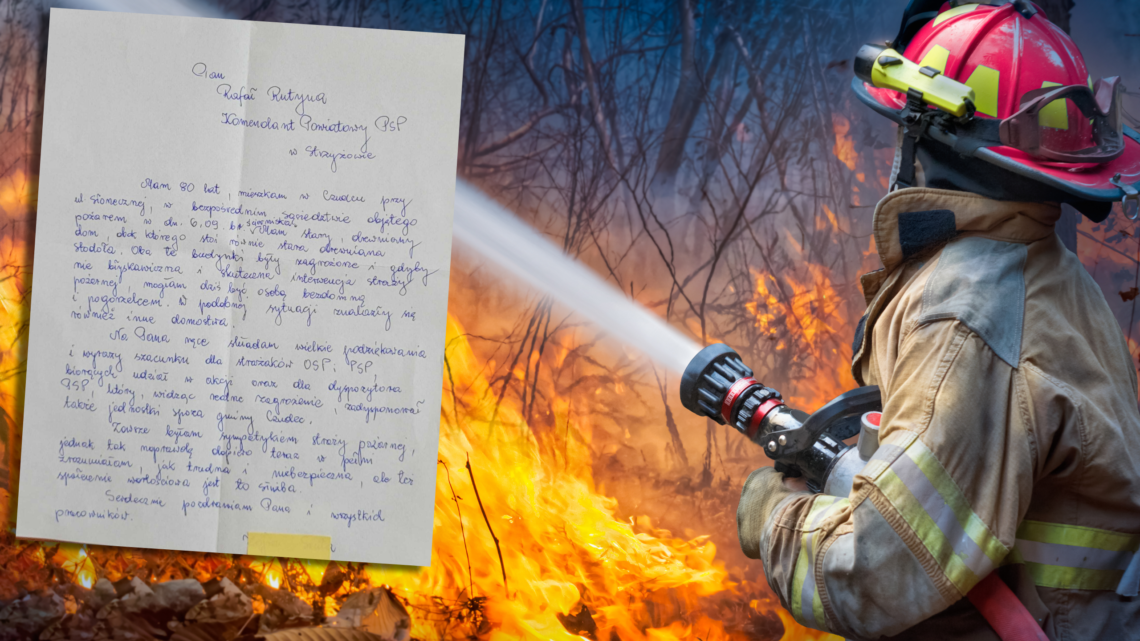 Pan
Rafał Rutyna
Komendant Powiatowy PSP
w Strzyżowie
Mam 80 lat, mieszkam w Czudcu przy
ul. Słonecznej, w bezpośrednim sąsiedztwie objętego
pożarem w dn. 6.09. br.
Mam stary, drewniany
dom, obok którego stoi równie stara drewniana
stodoła. Oba te budynki były zagrożone i gdyby
nie błyskawiczna i skuteczna interwencja straży
pożarnej, mogłam dziś być osobą bezdomną
i pogorzelcem. W podobnej sytuacji znalazły się
również inne domostwa.
Na Pana ręce składam wielkie podziękowania
i wyrazy szacunku dla strażaków OSP i PSP,
biorących udział w akcji oraz dla dyspozytora
PSP, który, widząc realne zagrożenie, zadysponował
także jednostki spoza gminy Czudec.
Zawsze byłam sympatykiem straży pożarnej,
jednak tak naprawdę dopiero teraz w pełni
zrozumiałam, jak trudna i niebezpieczna, ale też
społecznie wartościowa jest to służba.
Serdecznie pozdrawiam Pana i wszystkich
pracowników.